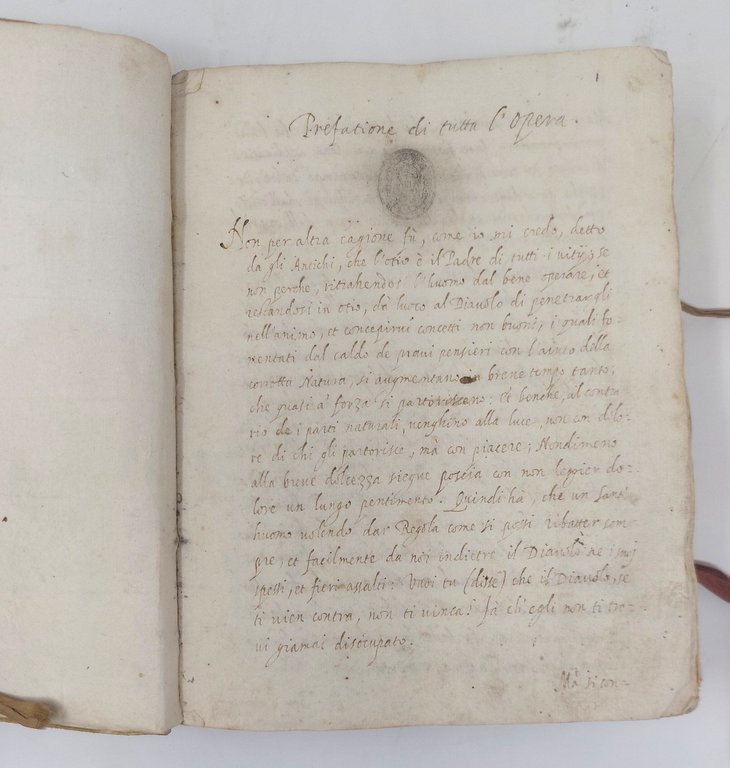 1
Prefatione di tutta l'Opera.
Non per altra cagione fù, come io mi credo, detto
da gli Antichi, che l'otio è il Padre di tutti i vitij, se
non perche, ritrahendosi l'huomo dal bene operare, et
restandosi in otio, dà luoco al Diavolo di penetrargli
nell'animo, et concepirvi concetti non buoni, i quali fo-
mentati dal caldo de pravi pensieri con l'aiuto della
corrotta Natura, si augmentano in breve tempo tanto,
che quasi a' forza si partoriscono: et benche, al contra
rio de i parti naturali, venghino alla luce, non con dolo-
re di chi gli partorisce, mà con piacere; Nondimeno
alla breve dolcezza siegue poscia con non leggier do-
lore un lungo pentimento. Quindi hà, che un Sant'
huomo volendo dar Regola come si possi ribatter sem
pre, et facilmente da noi indietre il Diavolo ne i suoj
spessi, et fieri assalti: Vuoi tu (disse) che il Diavolo, se
ti vien contra, non ti vinca? Fà ch'egli non ti tro-
vi giamai disocupato.
Mà si con-